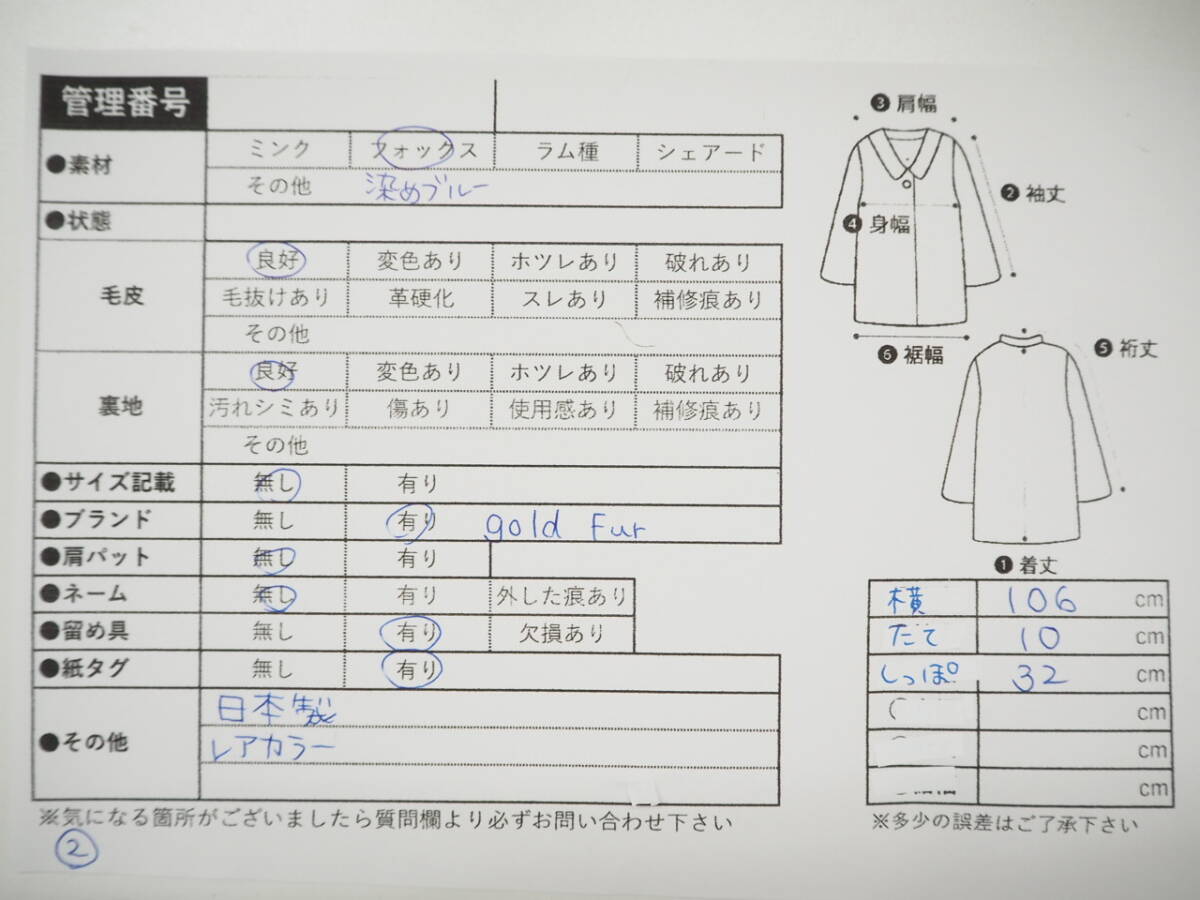 管理番号
●素材 ミンク フォックス ラム種 シェアード
その他 染めブルー
●状態
毛皮 良好 変色あり ホツレあり 破れあり
毛抜けあり 革硬化 スレあり 補修痕あり
その他
裏地 良好 変色あり ホツレあり 破れあり
汚れシミあり 傷あり 使用感あり 補修痕あり
その他
●サイズ記載 無し 有り
●ブランド 無し 有り gold Fur
●肩パット 無し 有り
●ネーム 無し 有り 外した痕あり
●留め具 無し 有り 欠損あり
●紙タグ 無し 有り
●その他 日本製
レアカラー
※気になる箇所がございましたら質問欄より必ずお問い合わせ下さい
②
❸肩幅
❷袖丈
❹身幅
❻裾幅
❺裄丈
❶着丈
横 106 cm
たて 10 cm
しっぽ 32 cm
cm
cm
cm
※多少の誤差はご了承下さい